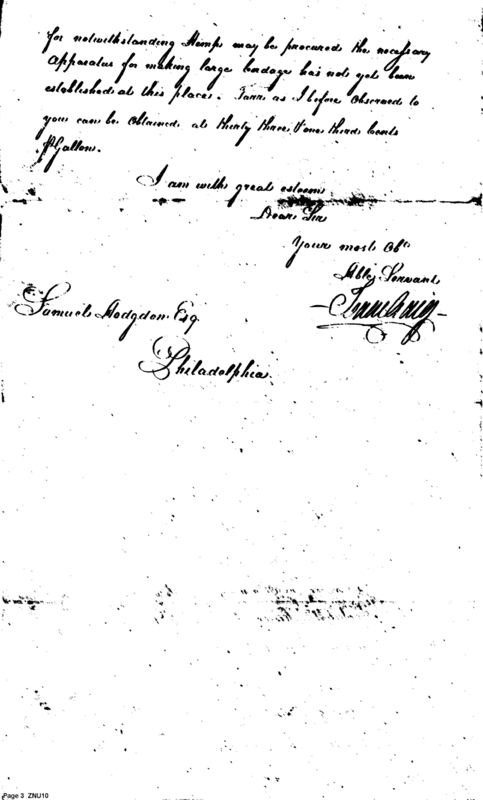 for notwithstanding Hemp may be procured the necessary
apparatus for making large Cordage has not yet been
established at this place. Tarr as I before observed to
you can be obtained at thirty three & one third Cents
⅌ Gallon.
I am with great esteem
Dear Sir
Your most Obt.
Hble Servant
Isaac Craig
Samuel Hodgdon Esq
Philadelphia
Page 3 ZNU10